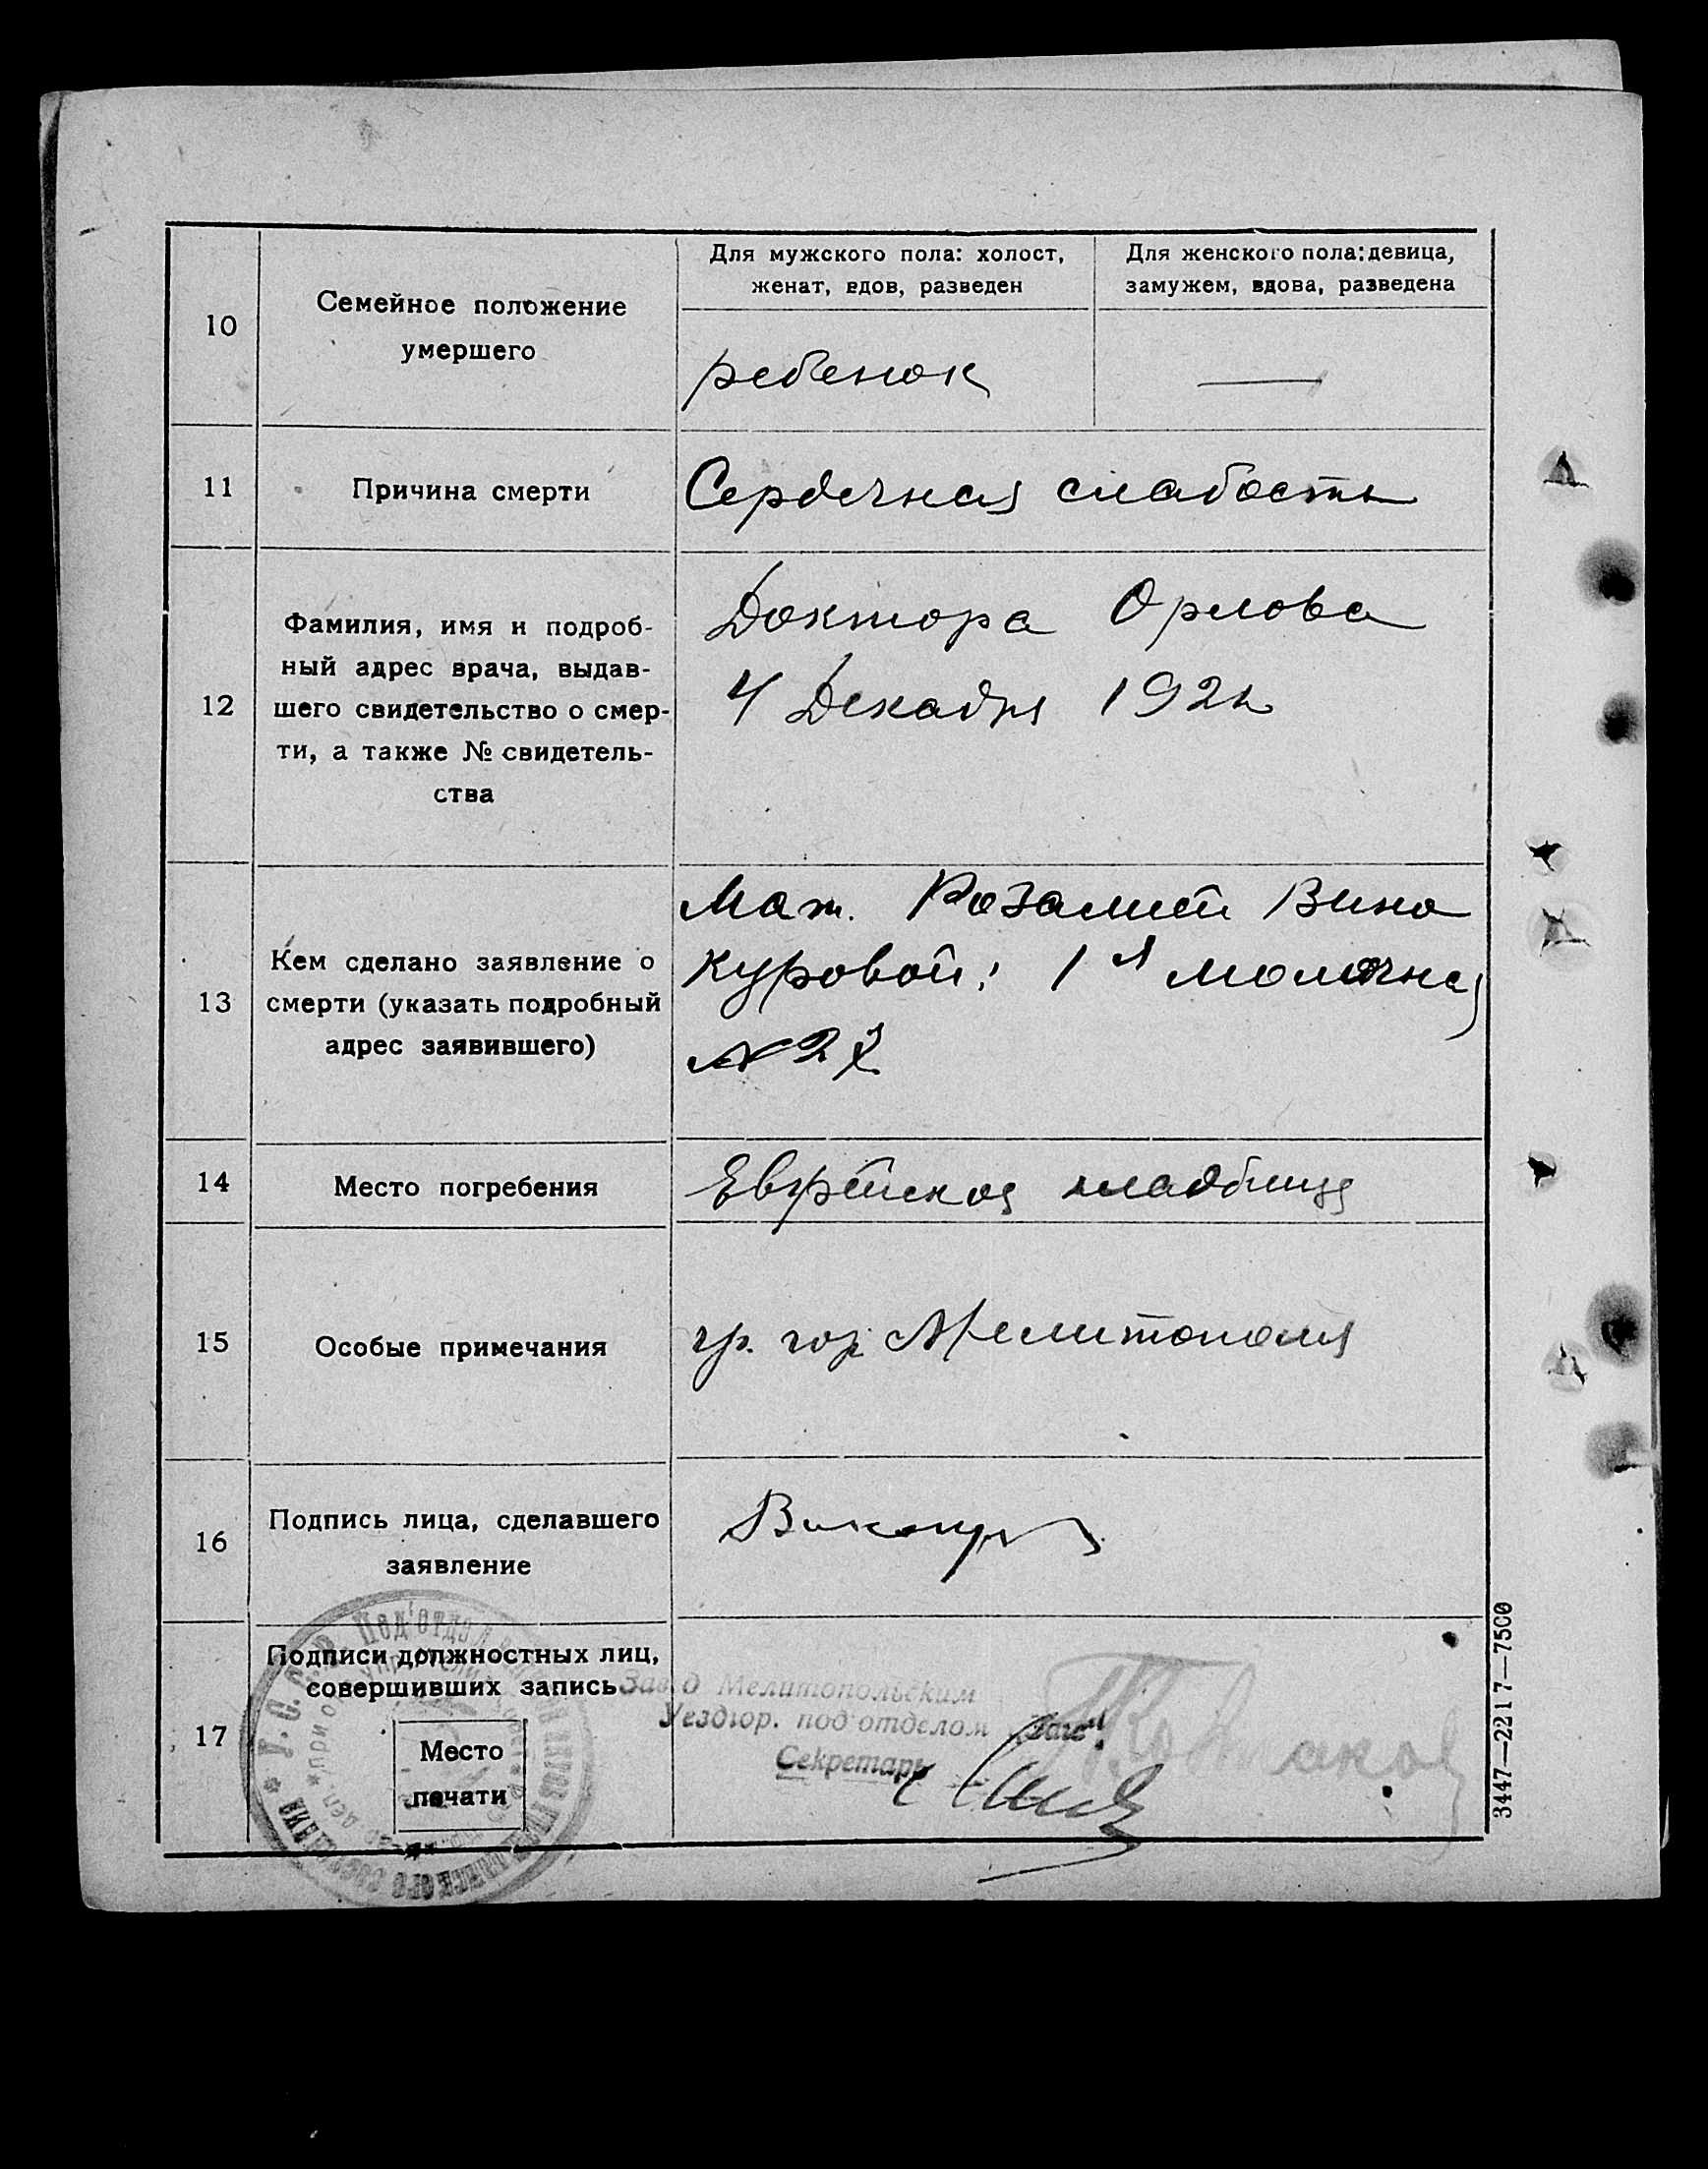 10
Семейное положение
умершего
Для мужского пола: холост,
женат, вдов, разведен
Для женского пола: девица,
замужем, вдова, разведена
ребенок
—
11
Причина смерти
Сердечная слабость
12
Фамилия, имя и подроб-
ный адрес врача, выдав-
шего свидетельство о смер-
ти, а также № свидетель-
ства
Доктора Орлова
4 Декабря 192
13
Кем сделано заявление о
смерти (указать подробный
адрес заявившего)
Мат. Розалией Вино
куровой: 1я Молочная
№ 27
14
Место погребения
Еврейское кладбище
15
Особые примечания
гр. гор. Мелитополя
16
Подпись лица, сделавшего
заявление
17
Подписи должностных лиц,
совершивших запись
Место
печати
Мелитопольским
Уездгор. под'отделом „Загс“
Секретарь
Под'отдел
3447—2217—7500